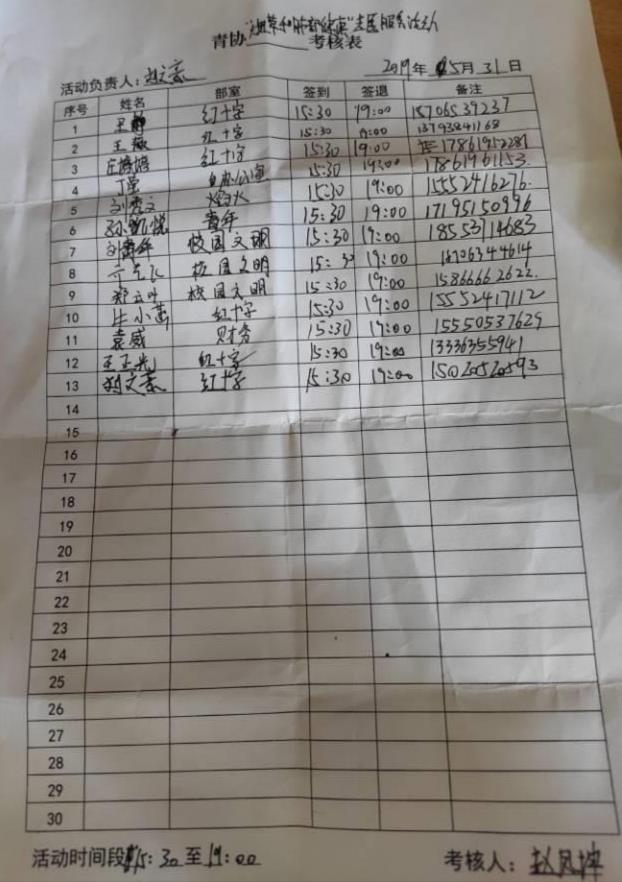 青协"烟草和肺部健康"志愿服务活动考核表
活动负责人：赵文豪 2019年5月31日
序号 姓名 部室 签到 签退 备注
1 红十字 15:30 19:00 15706539237
2 王 红十字 15:30 19:00 13793841168
3 庄婷婷 红十字 15:30 19:00 17861915228
4 丁 15:30 19:00 17861961153
5 刘 文 火 15:30 19:00 15552416276
6 孙凯悦 青年 15:30 19:00 17195150996
7 刘 校园文明 15:30 19:00 18553714683
8 校园文明 15:30 19:00 16706344614
9 郑云 校园文明 15:30 19:00 15866662622
10 小 红十字 15:30 19:00 15552417112
11 袁威 财务 15:30 19:00 15550537629
12 王正光 红十字 15:30 19:00 13336355941
13 刘文豪 红十字 15:30 19:00 15020520593
14
15
16
17
18
19
20
21
22
23
24
25
26
27
28
29
30
活动时间段15:30至19:00 考核人：赵凤坤